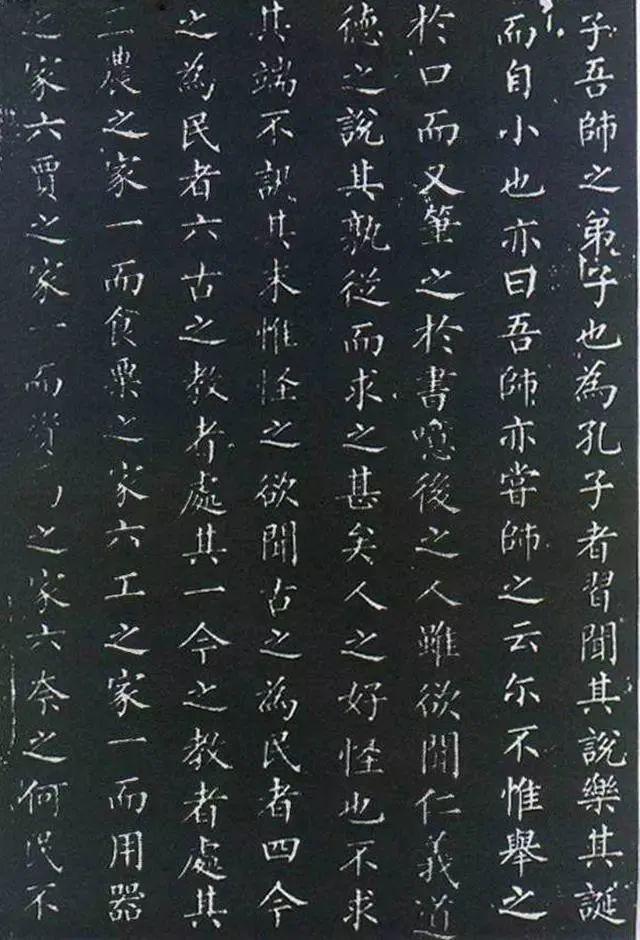 子吾師之弟子也為孔子者習聞其說樂其誕
而自小也亦曰吾師亦嘗師之云尓不惟舉之
於口而又筆之於書噫後之人雖欲聞仁義道
德之說其孰從而求之甚矣人之好怪也不求
其端不訊其末惟怪之欲聞古之為民者四今
之為民者六古之教者處其一今之教者處其
二農之家一而食粟之家六工之家一而用器
之家六賈之家一而資之家六奈之何民不